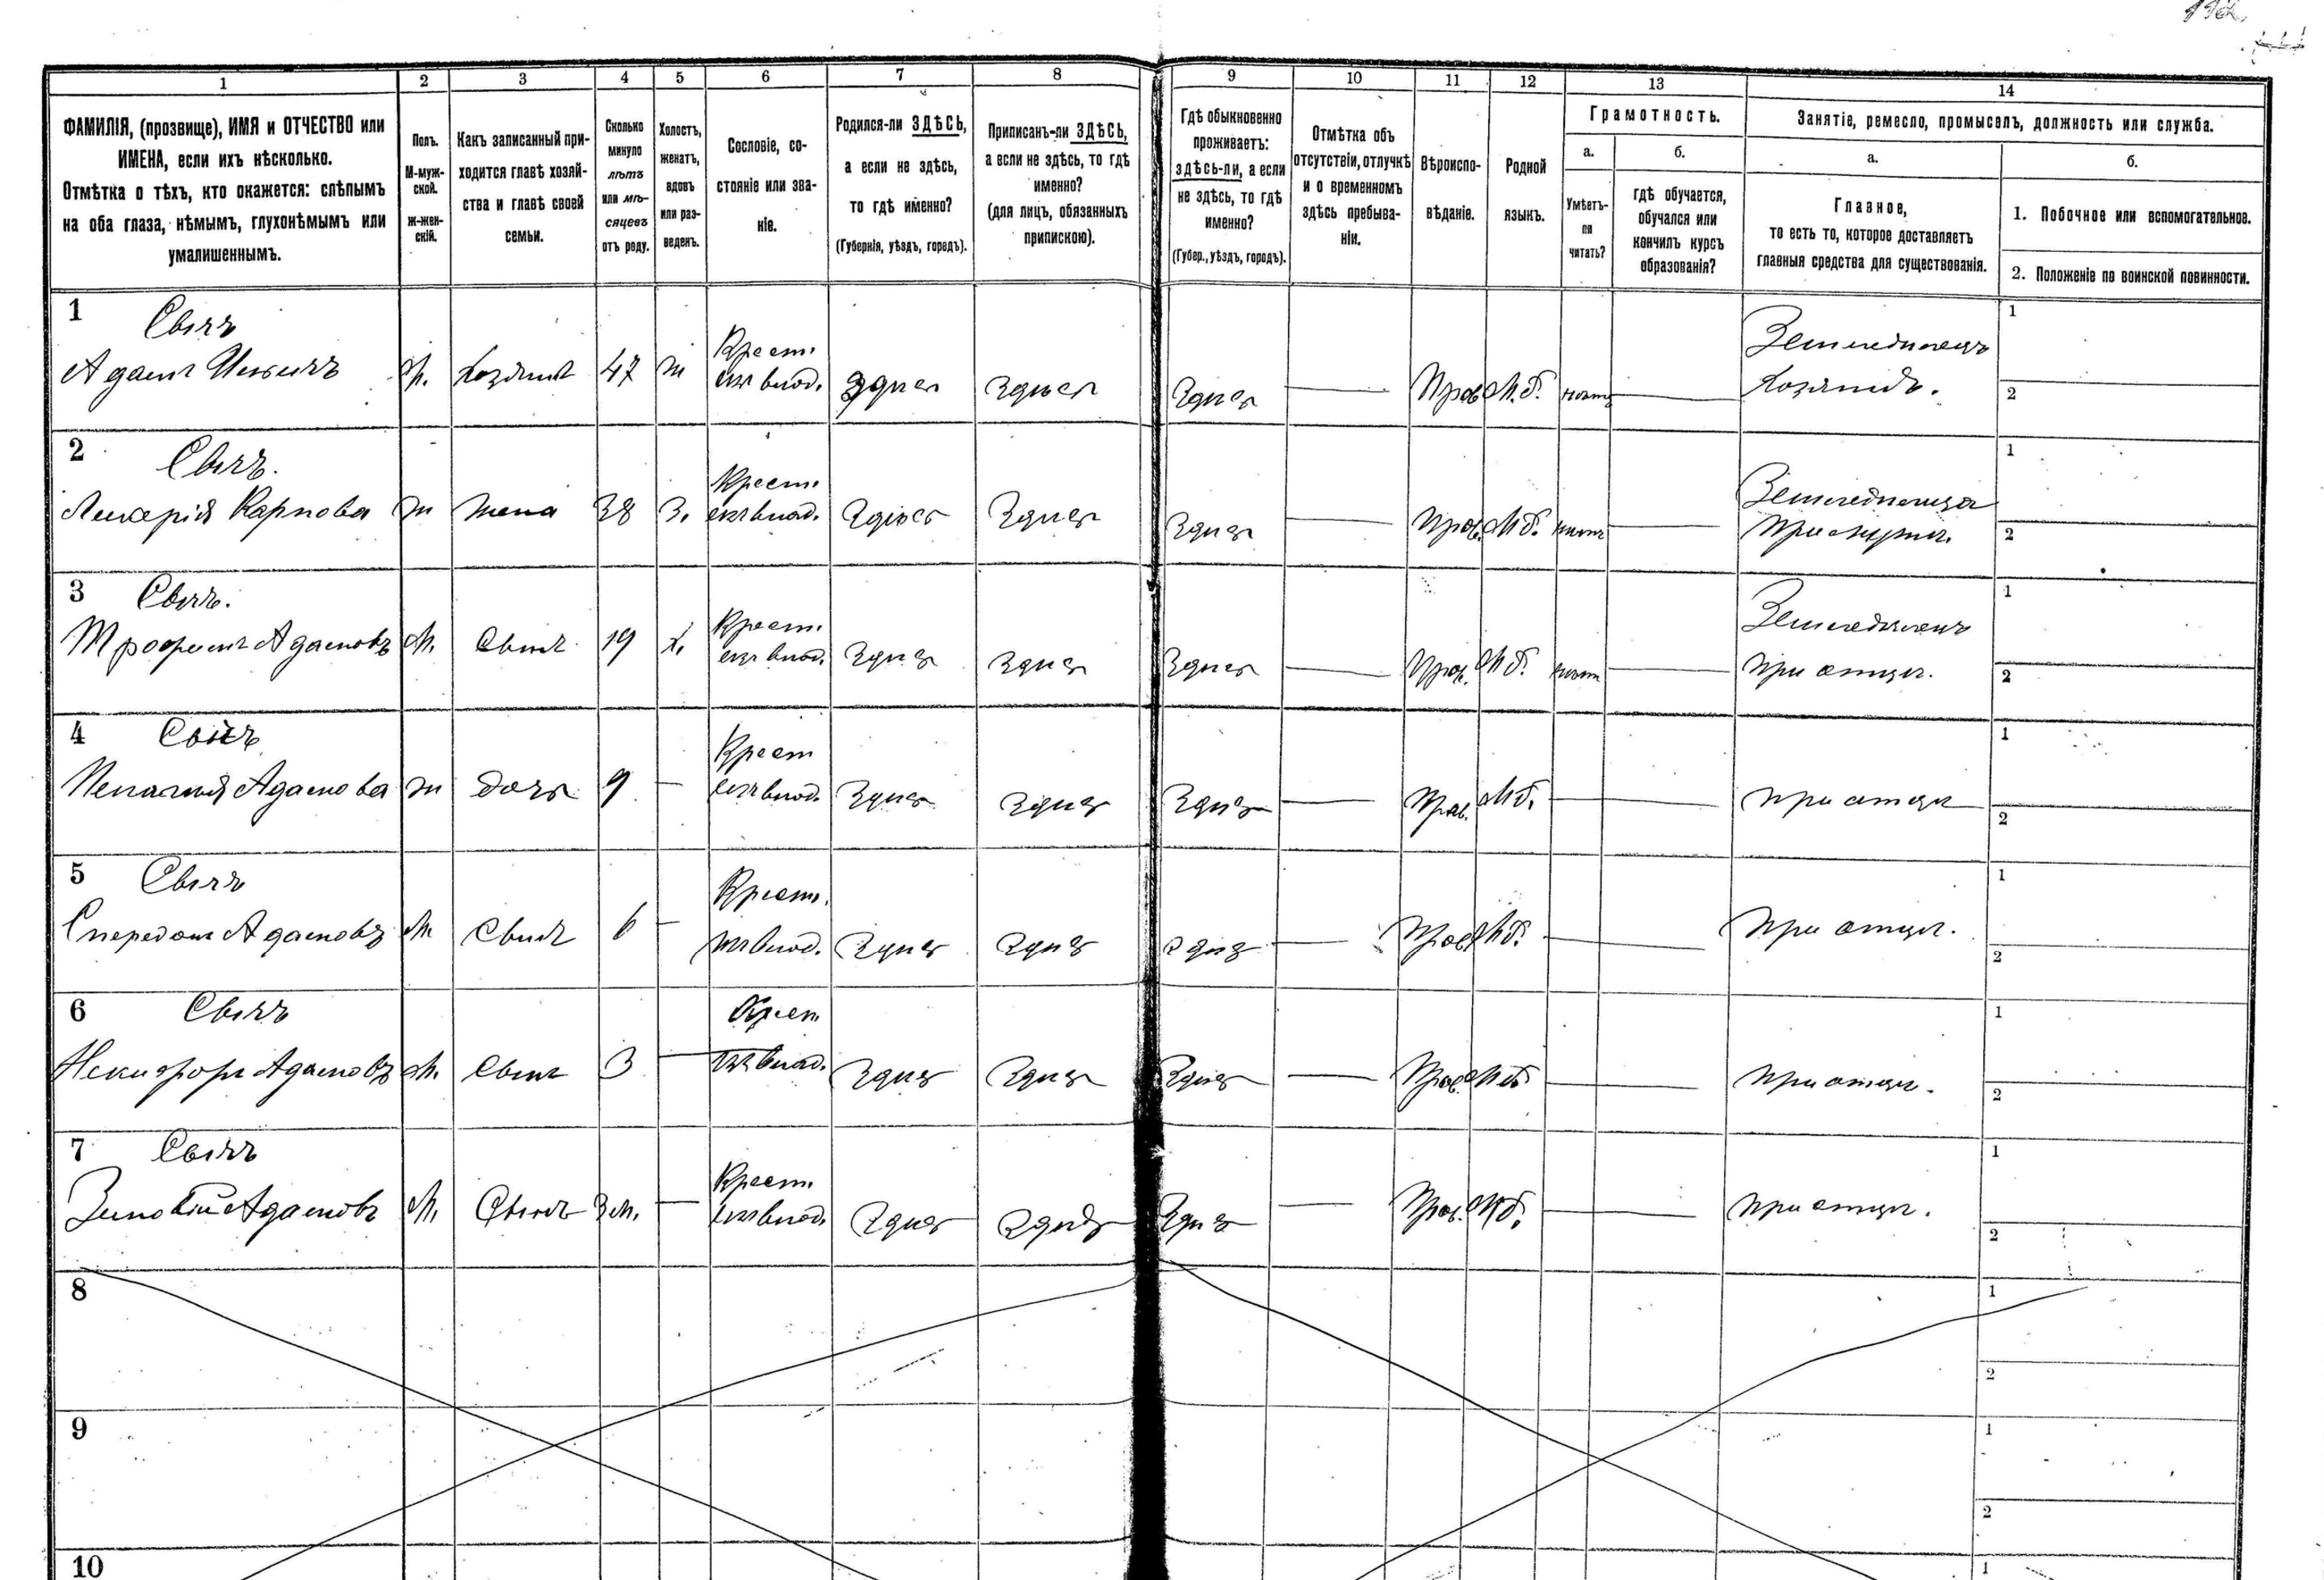 1 2 3 4 5 6 7 8 9 10 11 12 13 14
ФАМИЛІЯ, (прозвище), ИМЯ и ОТЧЕСТВО или
ИМЕНА, если ихъ нѣсколько.
Отмѣтка о тѣхъ, кто окажется: слѣпымъ
на оба глаза, нѣмымъ, глухонѣмымъ или
умалишеннымъ.
Полъ.
М-муж-
ской.
ж-жен-
скій.
Какъ записанный при-
ходится главѣ хозяй-
ства и главѣ своей
семьи.
Сколько
минуло
лѣтъ
или мѣ-
сяцевъ
отъ роду.
Холостъ,
женатъ,
вдовъ
или раз-
веденъ.
Сословіе, со-
стояніе или зва-
ніе.
Родился-ли ЗДѢСЬ,
а если не здѣсь,
то гдѣ именно?
(Губернія, уѣздъ, городъ).
Приписанъ-ли ЗДѢСЬ,
а если не здѣсь, то гдѣ
именно?
(для лицъ, обязанныхъ
припискою).
Гдѣ обыкновенно
проживаетъ:
здѣсь-ли, а если
не здѣсь, то гдѣ
именно?
(Губер., уѣздъ, городъ).
Отмѣтка объ
отсутствіи, отлучкѣ
и о временномъ
здѣсь пребыва-
ніи.
Вѣроиспо-
вѣданіе.
Родной
языкъ.
Грамотность.
а.
Умѣетъ-
ли
читать?
б.
гдѣ обучается,
обучался или
кончилъ курсъ
образованія?
Занятіе, ремесло, промыселъ, должность или служба.
а.
Главное,
то есть то, которое доставляетъ
главныя средства для существованія.
б.
1. Побочное или вспомогательное.
2. Положеніе по воинской повинности.
1
Адамъ
М. Хозяинъ 47 ж
Крест.
изъ влад.
Здѣсь Здѣсь Здѣсь — Прав. М.б. нѣтъ —
Земледѣлецъ
Хозяинъ.
1
2
2
Карпова ж жена 38 З.
Крест.
изъ влад.
Здѣсь Здѣсь Здѣсь — Прав. Мб. нѣтъ —
Земледѣлица
при мужѣ.
1
2
3
Трофимъ Адамовъ М. Сынъ 19 х.
Крест.
изъ влад.
Здѣсь Здѣсь Здѣсь — Прав. Мб. нѣтъ —
Земледѣлецъ
при отцѣ.
1
2
4
Пелагия Адамова ж дочь 9 —
Крест
изъ влад.
Здѣсь Здѣсь Здѣсь — Прав. Мб. — при отцѣ
1
2
5
Спередонъ Адамовъ М. Сынъ 6 —
Крест.
изъ влад.
Здѣсь Здѣсь Здѣсь — Прав. Мб. — при отцѣ.
1
2
6
Некифоръ Адамовъ М. Сынъ 3 —
Крест
изъ влад.
Здѣсь Здѣсь Здѣсь — Прав. Мб — при отцѣ.
1
2
7
Зиновій Адамовъ М. Сынъ 3 м. —
Крест.
изъ влад.
Здѣсь Здѣсь Здѣсь — Прав. Мб. — при отцѣ.
1
2
8
1
2
9
1
2
10
1